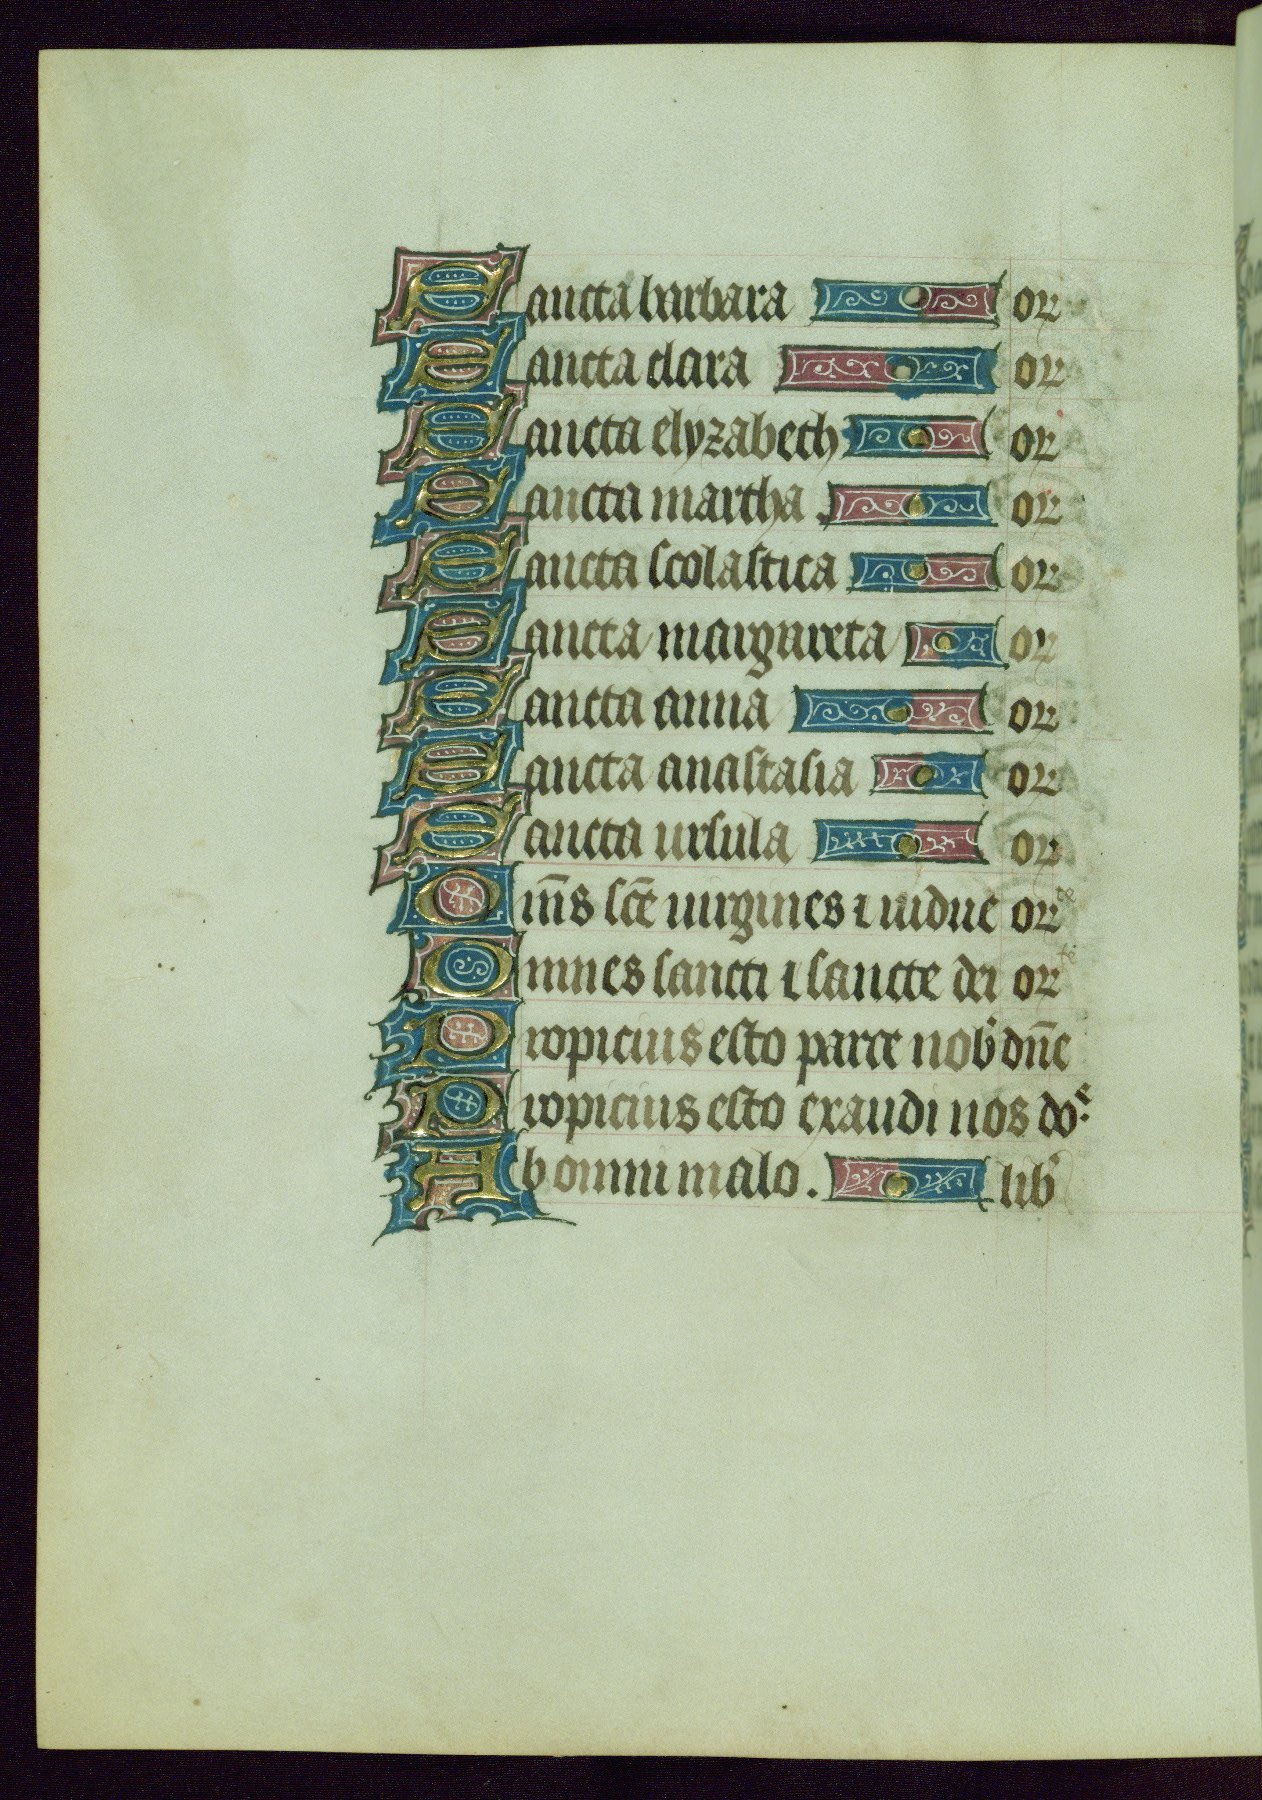 Sancta barbara or
Sancta clara or
Sancta elyzabech or
Sancta martha or
Sancta scolastica or
Sancta margareta or
Sancta anna or
Sancta anastasia or
Sancta ursula or
Om̄s sc̄e uirgines ⁊ uidue or te
Omnes sancti ⁊ sancte dei or te
Propicius esto parce nob' dn̄e
Propicius esto exaudi nos do͛
Ab omni malo. lib'